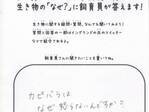 生き物の「なぜ？」に飼育員が答えます！
生き物に関する疑問・質問、なんでも聞いてみよう！
質問と回答の一部はイングランドの丘のツイッター
などで紹介するよ。
飼育員さんに聞きたいことを書いてね。
カピバラは
なぜ怒らないんですか？